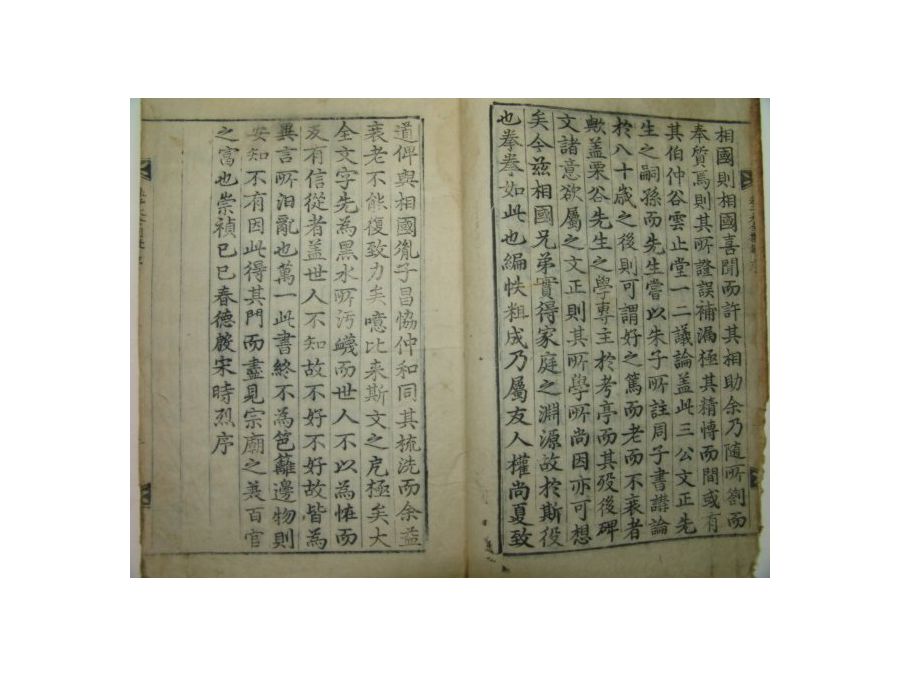 相國則相國喜聞而許其相助余乃隨所劄而
奉質焉則其所證誤補漏極其精慱而間或有
其伯仲谷雲止堂一二議論盖此三公文正先
生之嗣孫而先生嘗以朱子所註周子書講論
於八十歳之後則可謂好之篤而老而不衰者
歟盖栗谷先生之學專主於考亭而其歿後碑
文諸意欲屬之文正則其所學所尚因亦可想
矣今兹相國兄弟實得家庭之淵源故於斯役
也拳拳如此也編帙粗成乃屬友人權尚夏致
道俾與相國胤子昌協仲和同其梳洗而余益
衰老不能復致力矣噫比来斯文之戹極矣大
全文字先為黒水所汚衊而世人不以為恠而
反有信從者盖世人不知故不好不好故皆為
異言所汨亂也萬一此書終不為笆籬邊物則
安知不有因此得其門而盡見宗廟之美百官
之富也崇禎己巳春德殷宋時烈序